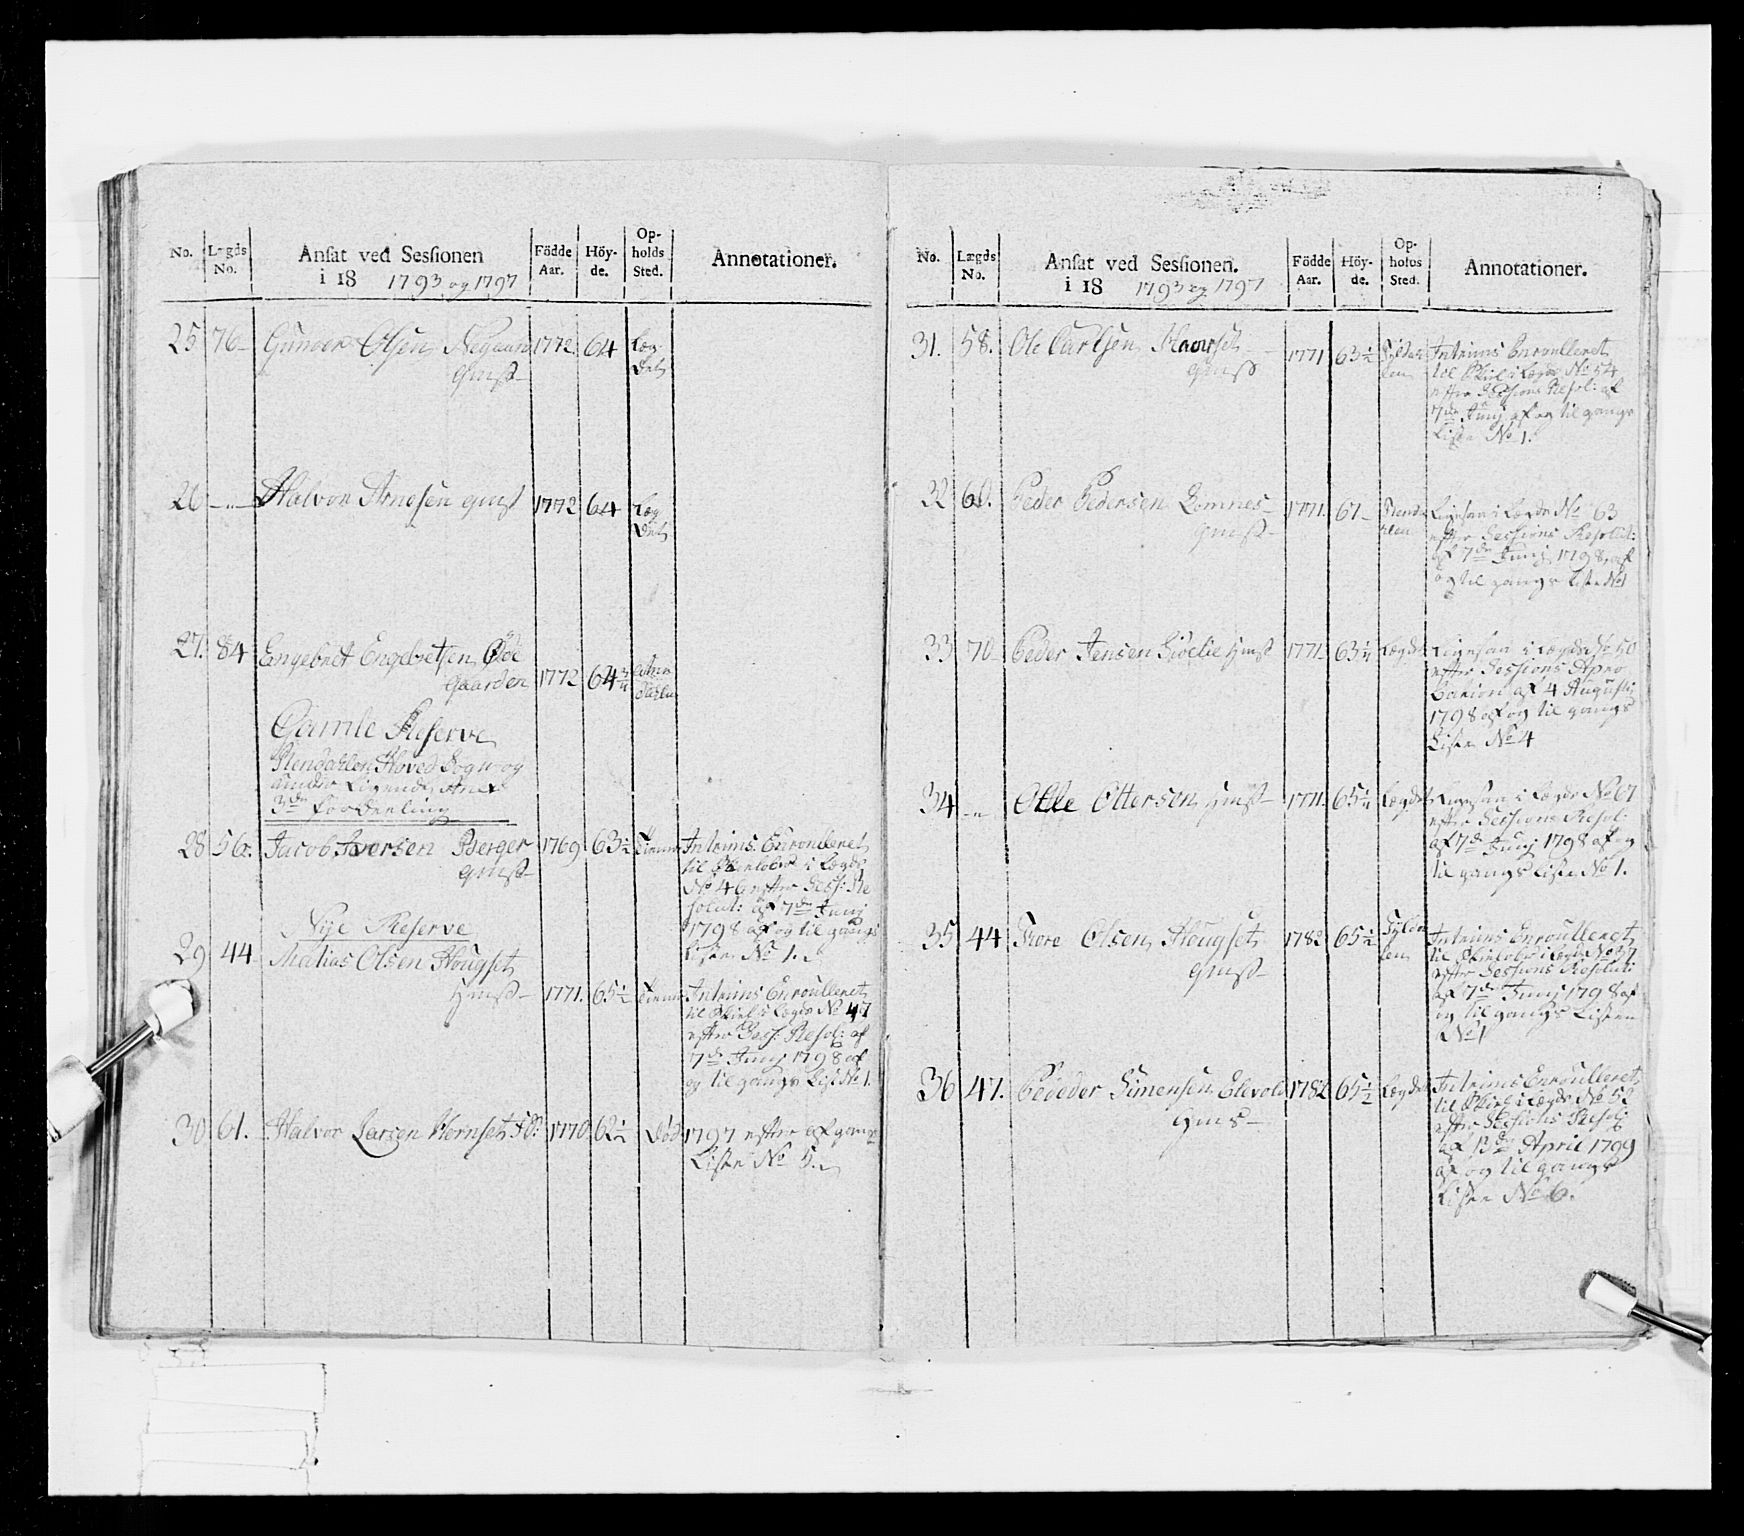 No.
Lægds No.
Ansat ved Sessionen
i 18 1793 og 1797
Födde Aar.
Höy-
de.
Op-
holds
Sted.
Annotationer.
25 76 Gunder Olsen 1772 64 Læg
qmst det
26 Halvor Arnesen qmst 1772 64 Læg
det
27. 84 Engebret Engebretsen Øde
gaarden 1772 64 3/4
Gamle Reserve
Rendahlen Hoved Sogn og
under Liggende Anex
3de Fordeeling
28 56. Jacob Iversen Berger 1769 63 1/2 Intrims Enroulleret
qmst til i Lægde
No 46 efter Sess: Re
solut: af 7de Junj
1798 af og til gangs
Liste No 1.
Nÿe Reserve
29 44 Matias Olsen Hougset
qmst 1771. 65 1/2 Intrims Enroulleret
til i Lægde No 47
efter Sess: Resol: af
7de Junj 1798 af
og til gangs List No 1.
30 61. Halvor Larsen Hernset 1770 62 1/2 Död 1797 efter afgangs
Liste No 5.
No.
Lægds
No.
Ansat ved Sessionen.
i 18 1793 og 1797
Födde
Aar.
Höy-
de.
Op-
holds
Sted.
Annotationer.
31. 58. Ole Carlsen 1771 63 1/2 Intrims Enroulleret
qmst til i Lægde No 54
efter Sessions Resol: af
7de Junj af og til gangs
Liste No 1.
32 60. Peder Pedersen Lomnes 1771. 67 Ligesaa i Lægde No 63
qmst efter Sessions Resolut:
af 7de Junj 1798 af
og til gangs Liste No 1
33 70 Peder Jensen qmst 1771 63 1/4 Lægdet Ligesaa i Lægde No 50
efter Sessions Apro
bation af 4 Augusti
1798 af og til gangs
Liste No 4
34 Olle Ottersen qmst 1771. 65 1/4 Lægdet Ligesaa i Lægde No 67
efter Sessions Resol:
af 7de Junj 1798 af og
til gangs Liste No 1.
35 44 Tore Olsen Hougset 1782 65 1/2 Intrims Enroulleret
qmst til i Lægde No 37
efter Sessions Resoluti
af 7de Junj 1798 af
og til gangs Listen
No 1
36 47. Pededer Simensen Elevold 1782 65 1/2 Lægdet Intrims Enroulleret
qms til i Lægde No 52
efter Sessions Resol:
af 13de April 1799
af og til gangs
Liste No 6.